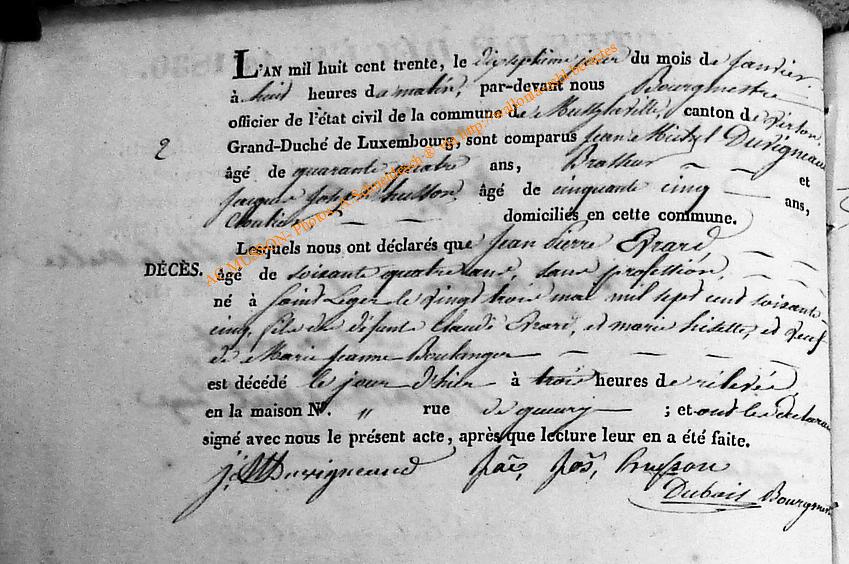 L'AN mil huit cent trente, le dixseptieme jour du mois de Janvier
à huit heures du matin, par-devant nous Bourgmestre
officier de l'état civil de la commune de Mussylaville, canton de Virton,
2
Grand-Duché de Luxembourg, sont comparus Jean Michel Duvigneaud
âgé de quarante quatre ans, Brasseur et
Jacques Joseph husson, âgé de cinquante cinq ans,
Cloutier domiciliés en cette commune.
Lesquels nous ont déclarés que Jean Pierre Evrard
DÉCÈS. âgé de soixante quatre ans, sans profession,
né à Saint Leger le vingt trois mai mil sept cent soixante
cinq, fils de défunts Claude Evrard, et marie et veuf
de Marie Jeanne Boulanger
est décédé le jour d'hier à trois heures de rélévée
en la maison N°. " rue de gueury ; et ont les déclarans
signé avec nous le présent acte, après que lecture leur en a été faite.
J. M. Duvigneaud Jac, Jos, husson
Dubois Bourgmestre
AC MUSSON- Photos- A Schneidesch & via http://wallonia.auhl.be/actes